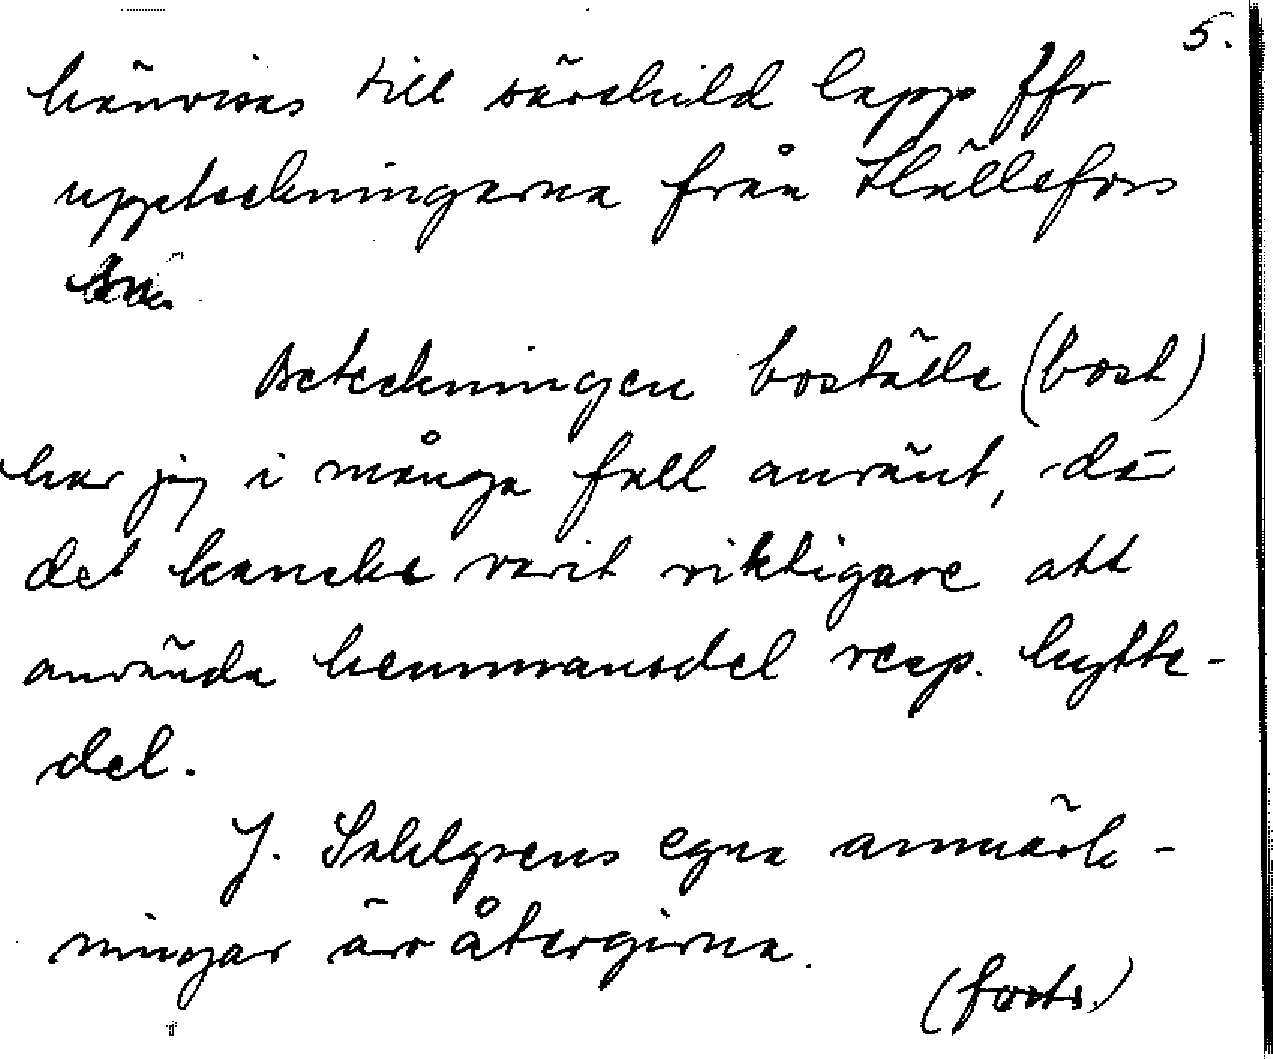 5.
hänvisas till särskild lapp ffr
uppteckningarna från Hällefors
Beteckningen boställe (bost)
har jag i många fall använt, då
det kanske varit riktigare att
använda hemmansdel resp. hytte-
del.
J. Sahlgrens egna anmärk-
ningar äro återgivna.
(forts.)